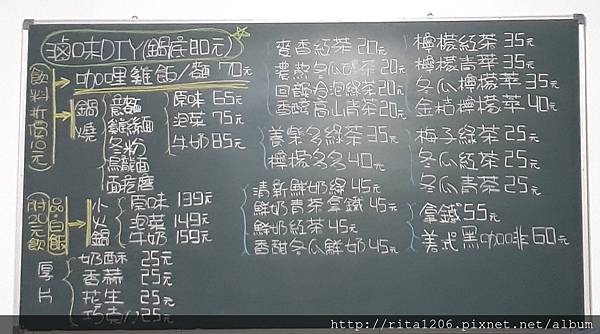 滷味DIY(鍋底80元)
咖哩雞飯/麵 70元
飲料折價10元
鍋燒
意麵
雞絲麵
冬粉
烏龍麵
面疙瘩
原味 65元
泡菜 75元
牛奶 85元
附20元飲品、白飯
小火鍋
原味 139元
泡菜 149元
牛奶 159元
厚片
奶酥 25元
香蒜 25元
花生 25元
巧克力 25元
麥香紅茶 20元
濃熬冬瓜茶 20元
回韻冷泡綠茶 20元
香醇高山青茶 20元
養樂多綠茶 35元
檸檬多多 40元
清新鮮奶綠 45元
鮮奶青茶拿鐵 45元
鮮奶紅茶 45元
香甜冬瓜鮮奶 45元
檸檬紅茶 35元
檸檬青茶 35元
冬瓜檸檬 35元
金桔檸檬 40元
梅子綠茶 25元
冬瓜紅茶 25元
冬瓜青茶 25元
拿鐵 55元
美式黑咖啡 60元
http://rita1206.pixnet.net/album